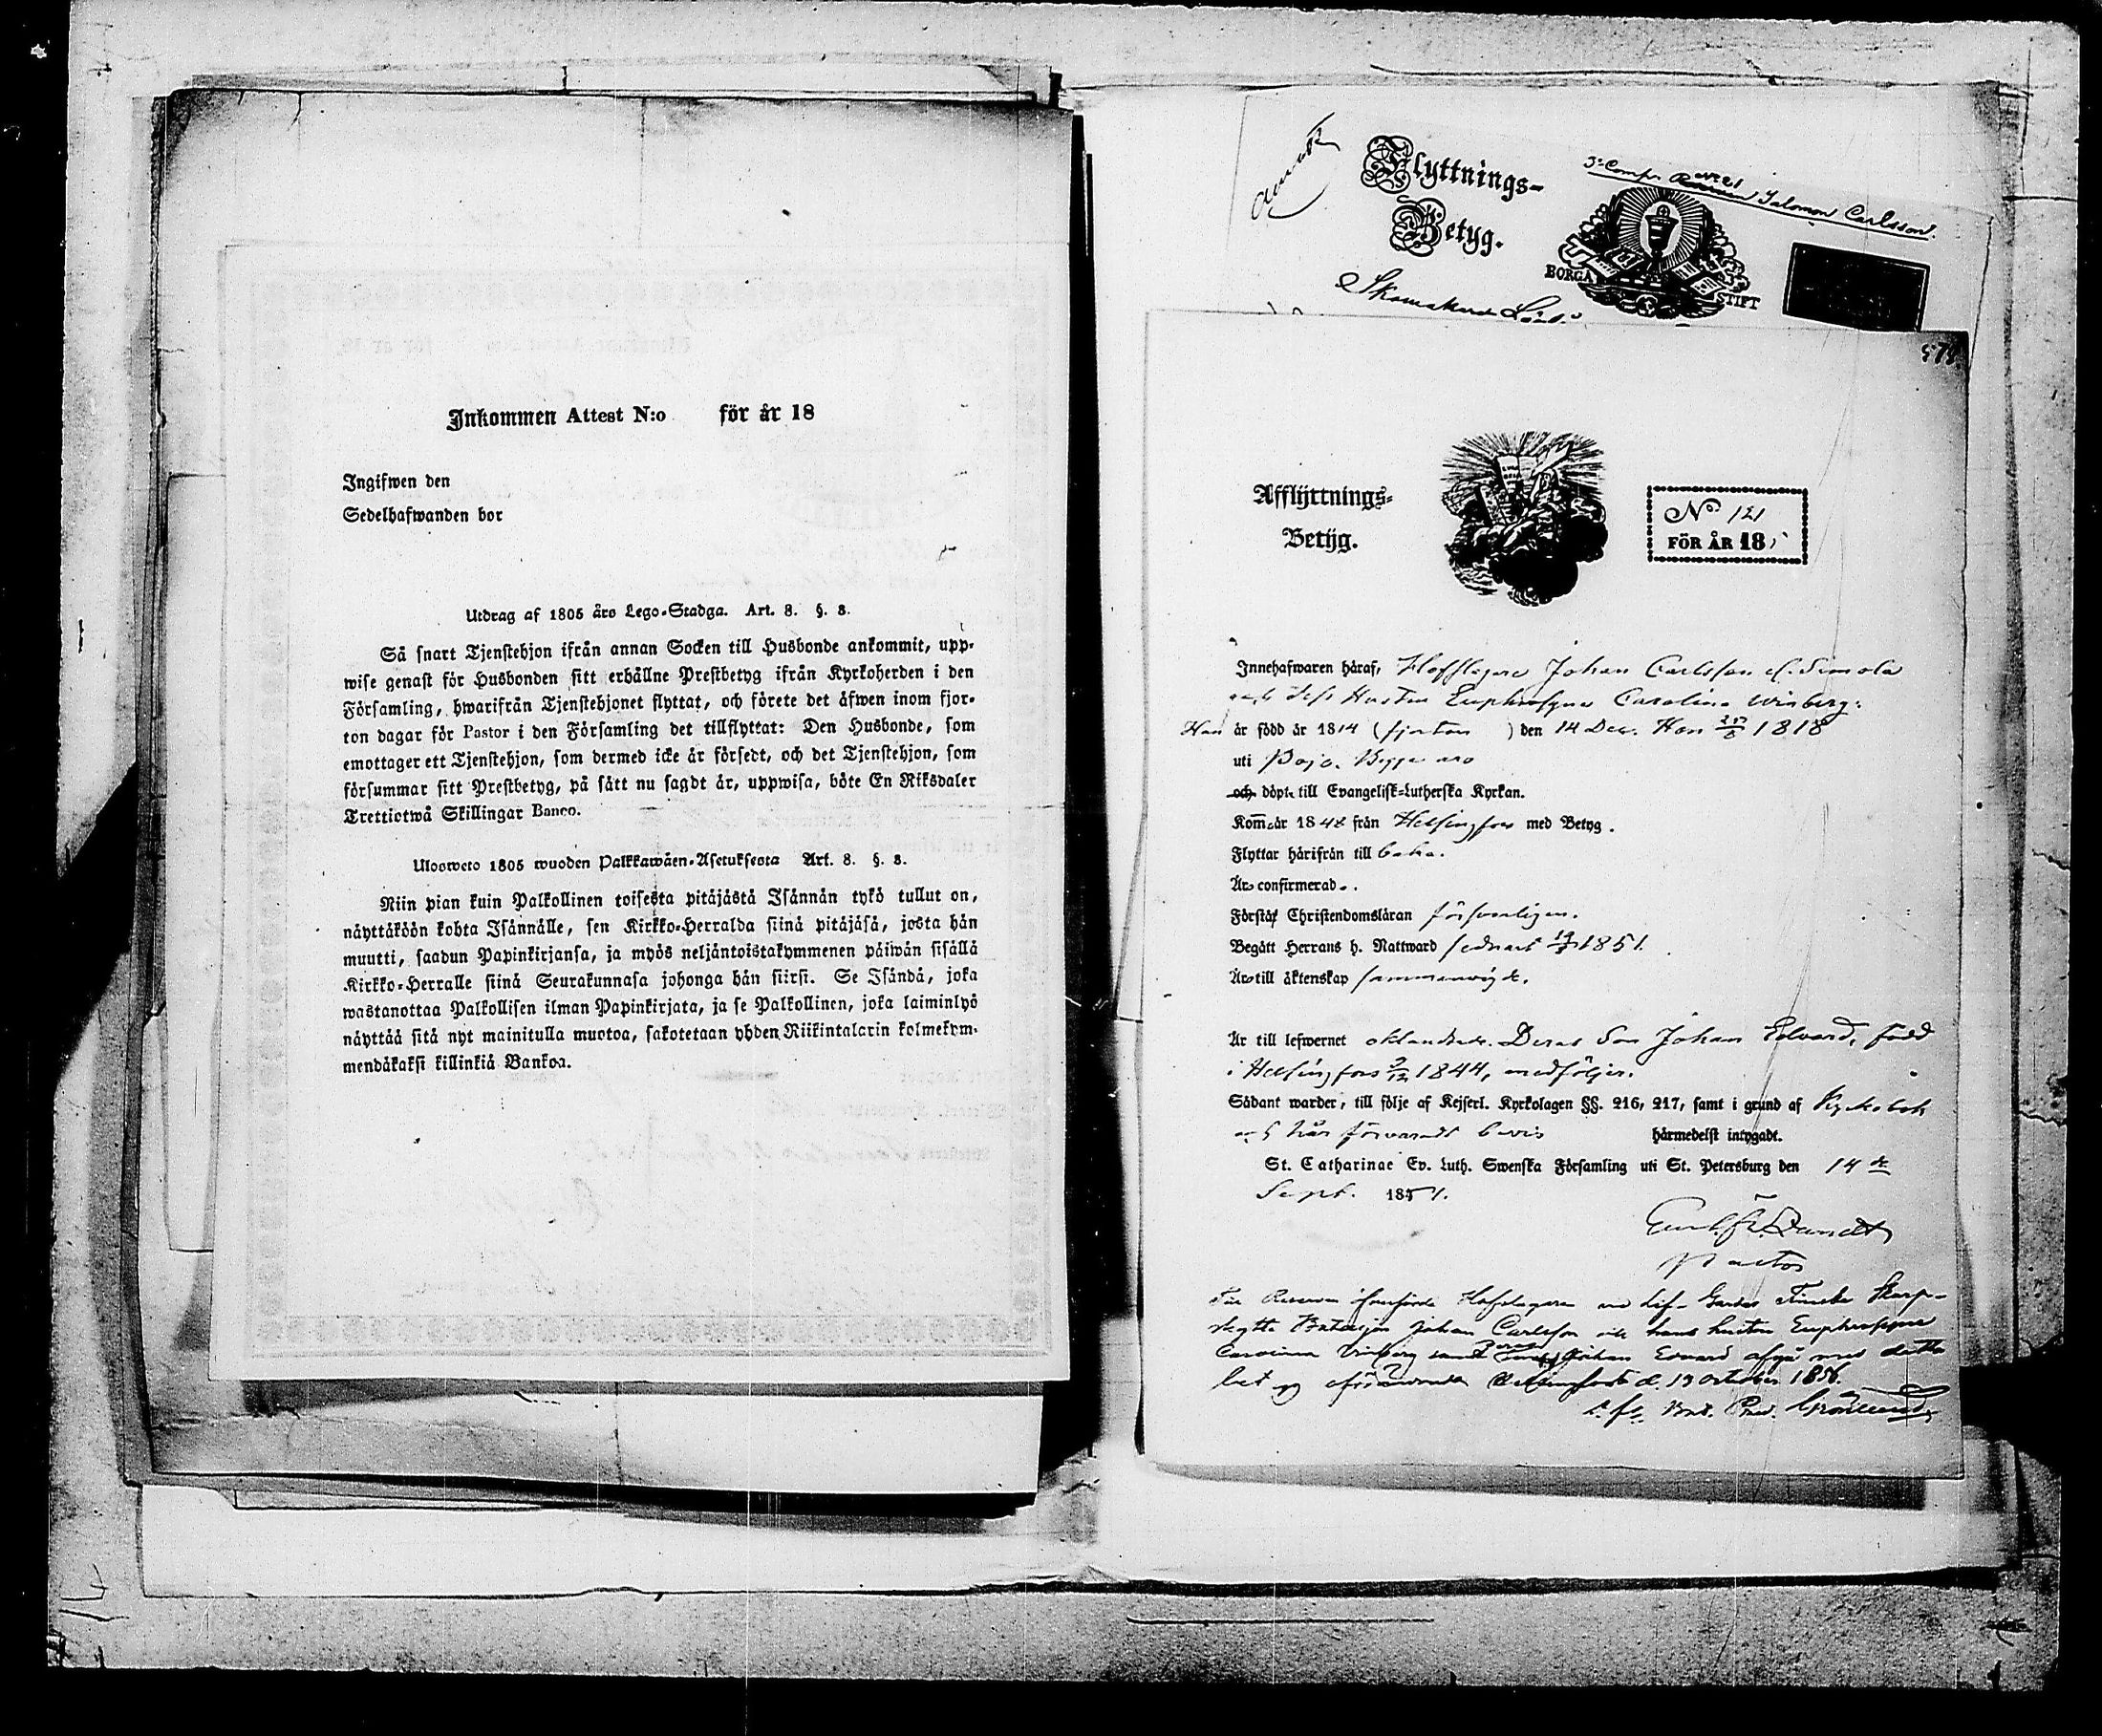 Inkommen Attest N:o för år 18
Ingifwen den
Sedelhafwanden bor
Utdrag af 1805 års Lego-Stadga. Art. 8. §. 8.
Så snart Tjenstehjon ifrån annan Socken till Husbonde ankommit, upp-
wise genast för Husbonden sitt erhållne Prestbetyg ifrån Kyrkoherden i den
Församling, hwarifrån Tjenstehjonet flyttat, och förete det äfwen inom fjor-
ton dagar för Pastor i den Församling det tillflyttat: Den Husbonde, som
emottager ett Tjenstehjon, som dermed icke är försedt, och det Tjenstehjon, som
försummar sitt Prestbetyg, på sätt nu sagdt är, uppwisa, böte En Riksdaler
Trettiotwå Skillingar Banco.
Ulosweto 1805 wuoden Palkkawäen-Asetuksesta Art. 8. §. 8.
Niin pian kuin Palkollinen toisesta pitäjästä Isännän tykö tullut on,
näyttäköön kohta Isännälle, sen Kirkko-Herralda siinä pitäjäsä, josta hän
muutti, saadun Papinkirjansa, ja myös neljäntoistakymmenen päiwän sisällä
Kirkko-Herralle siinä Seurakunnasa johonga hän siirsi. Se Isändä, joka
wastanottaa Palkollisen ilman Papinkirjata, ja se Palkollinen, joka laiminlyö
näyttää sitä nyt mainitulla muotoa, sakotetaan yhden Riikintalarin kolmekym-
mendäkaksi killinkiä Bankoa.
Flyttnings-
Betyg.
3:e Comp. N:o 21 Salomon Carlsson.
BORGÅ STIFT
Skomakare
Afflÿttnings-
Betÿg.
No. 121
FÖR ÅR 18
Innehafwaren häraf, Hofslagare Johan Carlsson Simola
och dess Hustru Euphrosyne Carolina Winberg.
Han är född år 1814 (fjorton ) den 14 Dec. Hon 1818
uti Pojo.
och döpt till Evangelisk-Lutherska Kyrkan.
Kom år 1848 från Helsingfors med Betyg.
Flyttar härifrån till
Är confirmerad.
Förstå Christendomsläran försvarligen.
Begått Herrans h. Nattward sednast 1851.
Är till äktenskap sammanvigde.
Är till lefwernet oklandrade. Deras Son Johan Edvard, född
i Helsingfors 9/12 1844, medföljer.
Sådant warder, till följe af Kejserl. Kyrkolagen §§. 216, 217, samt i grund af Kyrkobok
och här förvarade bevis härmedelst intygadt.
St. Catharinae Ev. Luth. Swenska Församling uti St. Petersburg den 14 de
Sept. 1851.
Pastor
Hofslagaren wid Lif-Gardes Finska Skarp-
skytte Bataljon Johan Carlsson och hans hustru Euphrosyne
Carolina Vinberg samt Johan Edvard afgå med detta
betyg Helsingfors d. 13 October 1856.